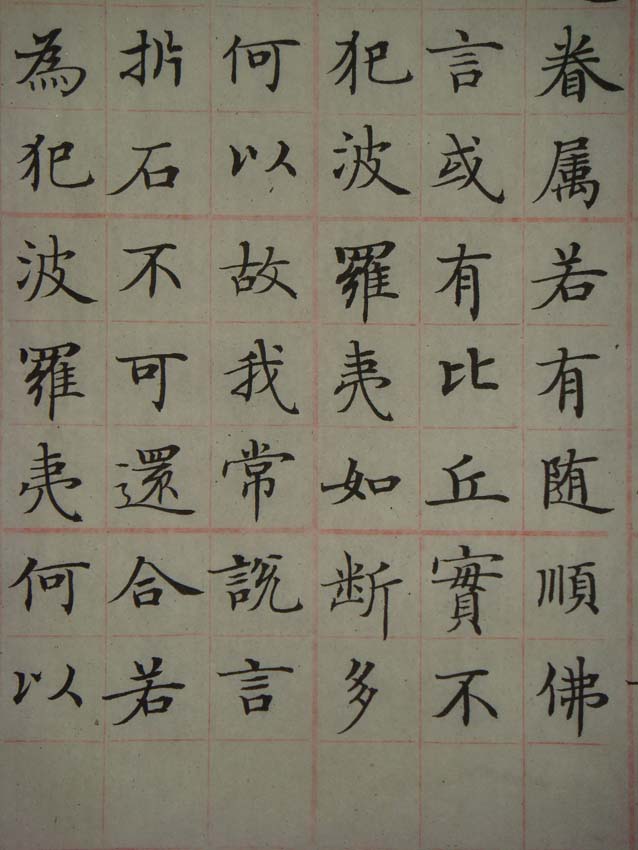 眷属若有随順佛
言或有比丘實不
犯波羅夷如断多
何以故我常説言
㭊石不可還合若
為犯波羅夷何以